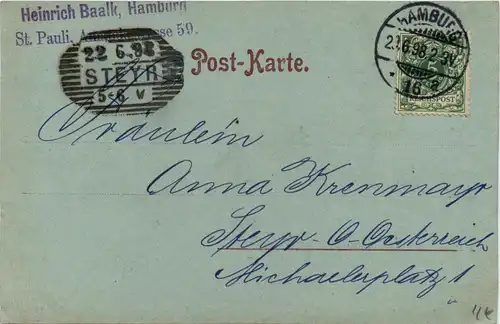 Heinrich Baalk, Hamburg
St. Pauli, 59.
22 6.98
STEYR
5-6 V
Post-Karte.
HAMBURG
21.6.98.2-3N
REICHSPOST
Fräulein
Anna Krenmayr
Steyr-O-Oesterreich
Michaelerplatz 1